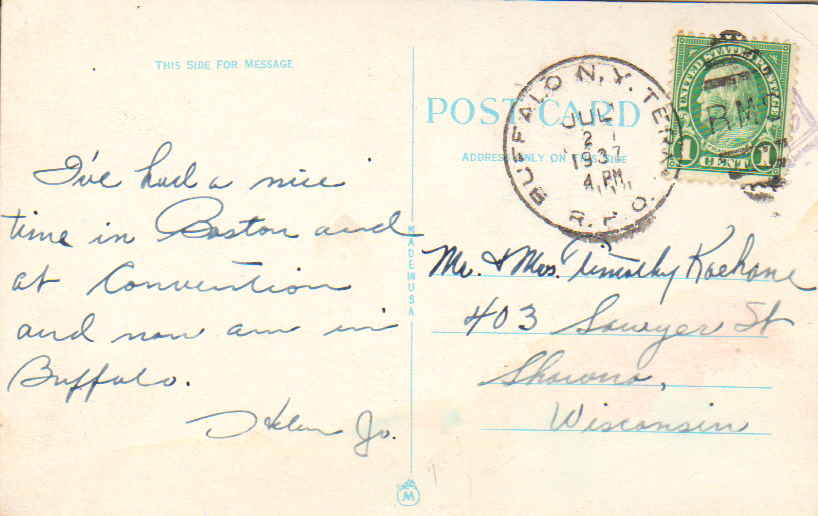 THIS SIDE FOR MESSAGE
I've had a nice
time in Boston and
at Convention
and now am in
Buffalo.
Helen Jo.
MADE IN U S A
POST CARD
ADDRESS ONLY ON THIS SIDE
BUFFALO N.Y. TERM.
JUL
2 1
1937
4 PM
R.P.O.
UNITED STATES POSTAGE
R.M.S
1 CENT 1
Mr. & Mrs. Timothy Koehane
403 Sawyer St
Shawno,
Wisconsin
M